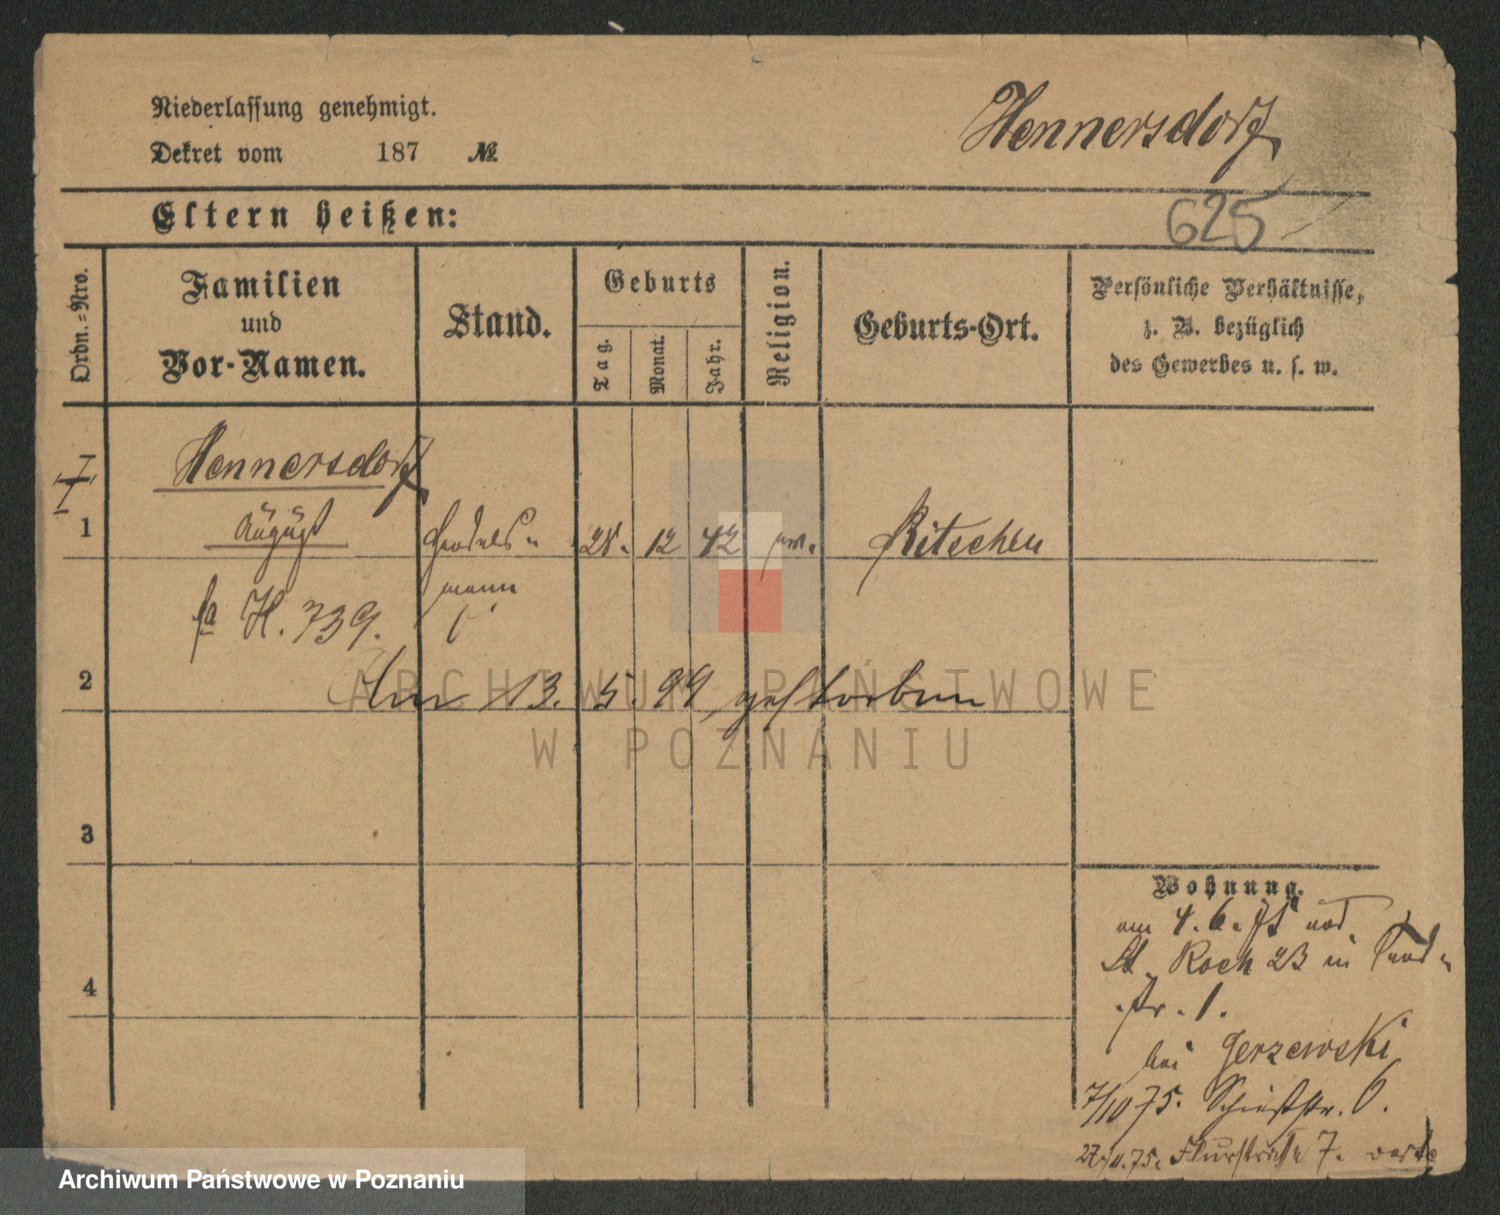 Niederlassung genehmigt.
Dekret vom 187 №
Hennersdorf
625
Eltern heißen:
Ordn.-Nro.
Familien
und
Vor-Namen.
Stand.
Geburts
Tag.
Monat.
Jahr.
Religion.
Geburts-Ort.
Persönliche Verhältnisse,
z. B. bezüglich
des Gewerbes u. s. w.
Hennersdorf
1 August Handels- 28. 12 42 ev. Ritschen
mann
H. 739.
2 Am 13. 5. 99 gestorben
ARCHIWUM PAŃSTWOWE
W POZNANIU
3
4
Wohnung.
am 4. 6. 75
St. Roch 23 in
str. 1.
bei Gerzewski
7/10 75. Schießstr. 6.
27/11.75. Flurstraße 7.
Archiwum Państwowe w Poznaniu